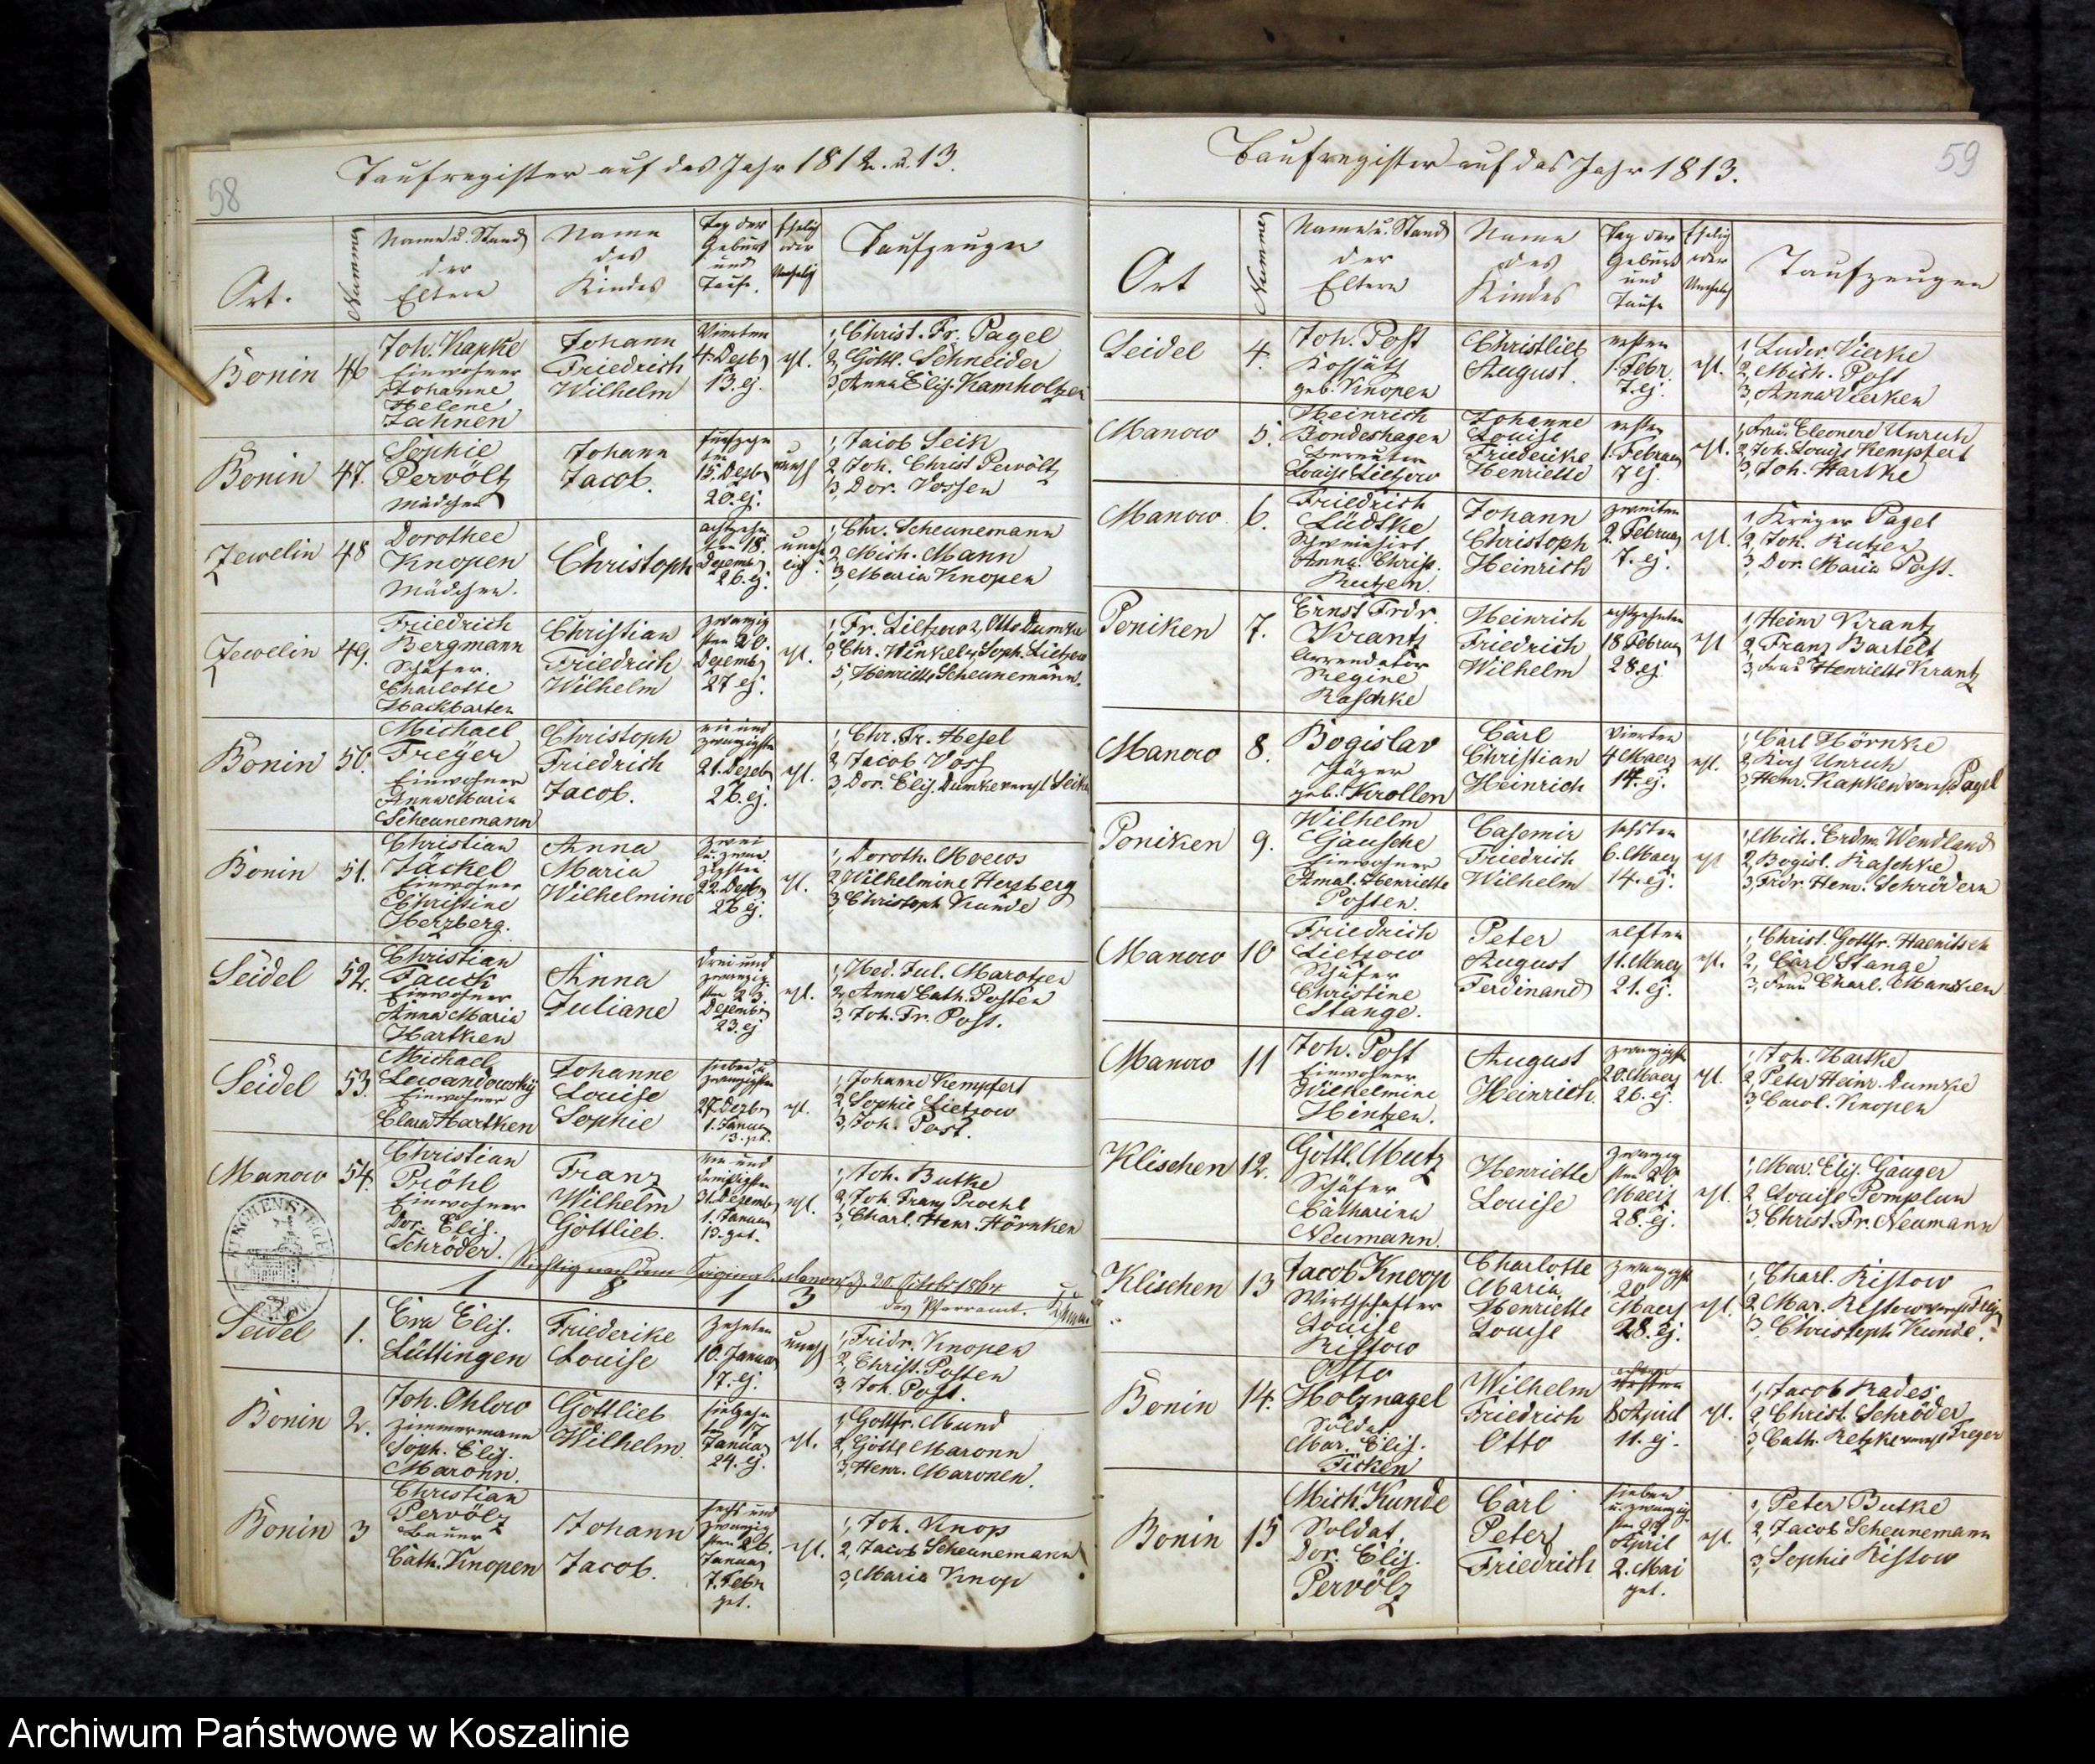 58
Taufregister auf das Jahr 1812. u. 13.
Ort.
Nummer
Name u. Stand
der
Eltern
Name
des
Kindes
Tag der
Geburt
und
Taufe.
Ehelig
oder
Unehelig
Taufzeugen
Bonin
46
Joh. Kapke
Einwohner
Johanne
Helene
Jahnen
Johann
Friedrich
Wilhelm
Vierten
4. Dezbr
13. ej.
ehl.
1, Christ. Fr. Pagel
2, Gottl. Schneider
3, Anna Elis. Kamholzen
Bonin
47.
Sophie
Pervöltz
Mädchen
Johann
Jacob.
funfzehn
ten
15. Dezbr
20. ej.
unehl
1, Jacob Leik
2, Joh. Christ Pervöltz
3, Dor. Vossen
Zewelin
48
Dorothee
Knopen
Mädchen.
Christoph
achtzehn
ten 18.
Dezembr
26. ej.
1, Chr. Scheunemann
2, Mich. Mann
3, Maria Knopen
Zewelin
49.
Friedrich
Bergmann
Schäfer.
Charlotte
Hackbarten
Christian
Friedrich
Wilhelm
zwanzig
sten 20.
Dezembr
27 ej.
ehl.
1, Fr. Lietzow 2, Otto Dumke
3, Chr. Winkel 4, Soph. Lietzow
5, Henriette Scheunemann.
Bonin
50.
Michael
Freyer
Einwohner
Anna Maria
Scheunemann
Christoph
Friedrich
Jacob.
ein und
zwanzigsten
21. Dezbr
26. ej.
ehl.
1, Chr. Fr. Hesel
2, Jacob Voss
3, Dor. Elis. Dumke verehl. Leik
Bonin
51.
Christian
Jäckel
Einwohner
Christine
Herzberg.
Anna
Maria
Wilhelmine
zwei
u. zwan
zigsten
22. Dezbr
26 ej.
ehl.
1, Doroth. Moews
2, Wilhelmine Herzberg
3, Christoph Kunde
Seidel
52.
Christian
Tauck
Einwohner
Anna Maria
Hartken
Anna
Juliane
Drei und
zwanzig
sten 23.
Dezembr
23. ej
ehl.
1, Hed. Jul. Marotzen
2, Anna Cath. Posten
3, Joh. Fr. Post.
Seidel
53.
Michael
Lewandowsky
Einwohner
Clara Hartken
Johanne
Louise
Sophie
sieben u.
zwanzigsten
27. Dezbr
1. Januar
13. gt.
ehl.
1, Johanne Kempfert
2, Sophie Lietzow
3, Joh. Post.
Manow
54.
Christian
Pröhl
Einwohner
Dor. Elis.
Schröder.
Franz
Wilhelm
Gottlieb.
ein und
dreißigsten
31. Dezembr
1. Januar
13. get.
ehl.
1, Joh. Butke
2, Joh. Franz Proehl
3, Charl. Henr. Hörnken
Richtig nach dem Original. Manow d. 20 Octobr 1864
Das Pfarramt.
1 8 1 3
Seidel
1.
Eva Elis.
Lüttingen
Friederike
Louise
Zehnten
10. Januar
17. ej.
unehl
1, Fridr. Knopen
2, Christ. Posten
3, Joh. Post.
Bonin
2.
Joh. Ohlow
Zimmermann
Soph. Elis.
Maronn.
Gottlieb
Wilhelm.
siebzehn
ten 17
Januar
24. ej.
ehl.
1, Gottfr. Mund
2, Gottl Maronn
3, Henr. Maronen.
Bonin
3
Christian
Pervölz
Bauer
Cath. Knopen
Johann
Jacob.
sechs und
zwanzig
sten 26.
Januar
7. Febr
get.
ehl.
1, Joh. Knop
2, Jacob Scheunemann
3, Maria Knop
59
Taufregister auf das Jahr 1813.
Ort
Nummer
Name u. Stand
der
Eltern
Name
des
Kindes
Tag der
Geburt
und
Taufe
Ehelig
oder
Unehelig
Taufzeugen
Seidel
4.
Joh. Post
Kossäth
geb. Knopen
Christlieb
August.
ersten
1. Febr.
7. ej.
ehl.
1, Luder Vierke
2, Mich. Post
3, Anna Vierken
Manow
5.
Heinrich
Bondeshagen
Louise Lietzow
Johanne
Louise
Friedericke
Henriette
ersten
1. Februar
7 ej.
ehl.
1, Frau Eleonore Unruh
2, Joh. Louise Kempfert
3, Joh. Hartke
Manow
6.
Friedrich
Lüdtke
Schweinhirt
Anna Christ.
Rutzen.
Johann
Christoph
Heinrich
zweiten
2. Februar
7. ej.
ehl.
1, Krüger Pagel
2, Joh. Rutzen
3, Dor. Maria Post.
Poniken
7.
Ernst Frdr.
Krantz
Arrendator
Regine
Raschke
Heinrich
Friedrich
Wilhelm
achtzehnten
18 Februar
28 ej.
ehl
1, Heinr Krantz
2, Franz Bartelt
3, Frau Henriette Krantz
Manow
8.
Bogislav
Jäger
geb. Krollen
Carl
Christian
Heinrich
vierten
4 Maerz
14. ej.
ehl.
1, Carl Hörnke
2, Unruh
3, Henr. Kapken verehl. Pagel
Poniken
9.
Wilhelm
Gansche
Einwohner
Amal. Henriette
Posten.
Casemir
Friedrich
Wilhelm
sechsten
6. Maerz
14. ej.
ehl
1, Mich. Erdm. Wendland
2, Bogisl. Raschke
3, Frdr. Henr. Schrödern
Manow
10
Friedrich
Lietzow
Schäfer
Christine
Stange.
Peter
August
Ferdinand
elften
11. Maerz
21. ej.
ehl.
1, Christ. Gottfr. Haenitsch
2, Carl Stange
3, Frau Charl. Mansken
Manow
11
Joh. Post
Einwohner
Wilhelmine
Hintzen.
August
Heinrich.
zwanzigsten
20. Maerz
26. ej.
ehl.
1, Joh. Hartke
2, Peter Heinr. Dumke
3, Carol. Knopen
Klischen
12.
Gottl. Mutz
Schäfer
Catharina
Neumann.
Henriette
Louise
zwanzig
sten 20.
Maerz
28. ej.
ehl.
1, Mar. Elis. Gauger
2, Louise Pomplun
3, Christ. Fr. Neumann
Klischen
13
Jacob Knoop
Wirthschafter
Louise
Ristow
Charlotte
Maria
Henriette
Louise
zwanzigst
20
Maerz
28. ej.
ehl.
1, Charl. Ristow
2, Mar. Ristow verehl Freyer
3, Christoph Kunde.
Bonin
14.
Otto
Holznagel
Soldat.
Mar. Elis.
Ficken
Wilhelm
Friedrich
Otto
8 April
11. ej.
ehl.
1, Jacob Rades
2, Christ. Schröder
3, Cath. Retzke verehl Freyer
Bonin
15
Mich. Kunde
Soldat.
Dor. Elis.
Pervölz
Carl
Peter
Friedrich
sieben
u. zwanzig
sten 27
April
2. Mai
get.
ehl.
1, Peter Butke
2, Jacob Scheunemann
3, Sophie Ristow
Archiwum Państwowe w Koszalinie